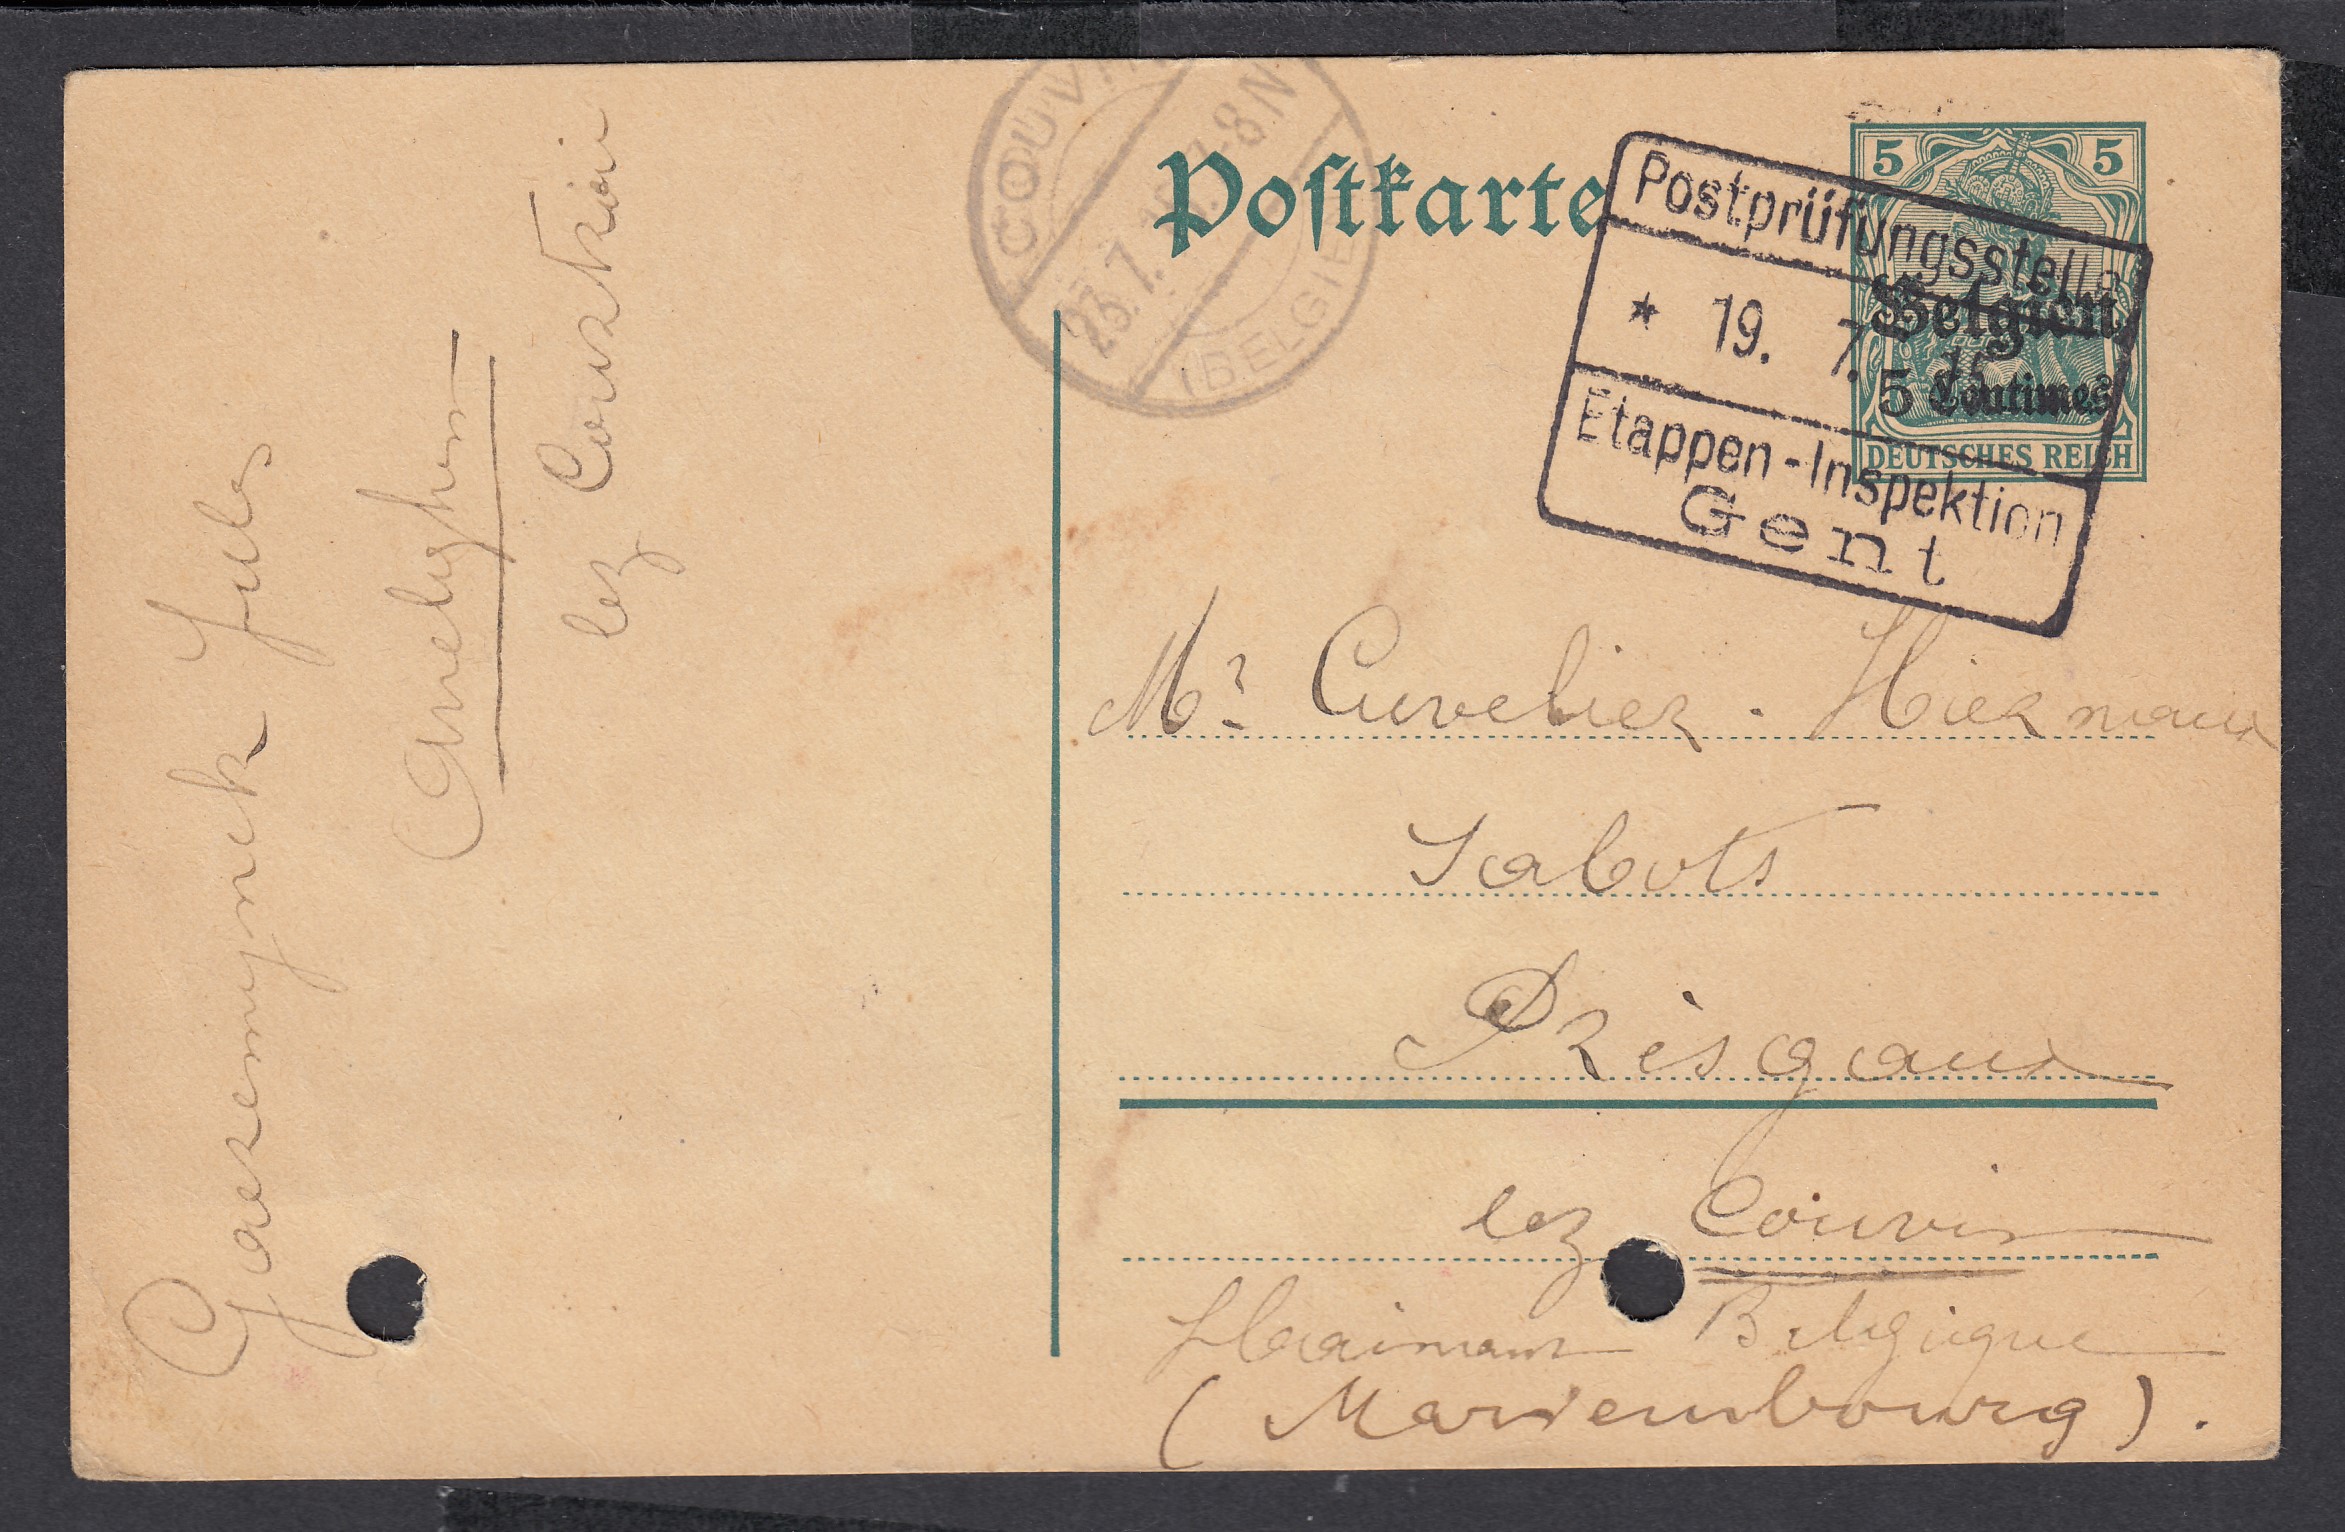 COUVIN
23.7. -8N
(BELGIEN)
Postkarte
5 5
DEUTSCHES REICH
Belgien
5 Centimes
Postprüfungsstelle
* 19. 7. 15
Etappen-Inspektion
Gent
Mr Cuvelier. Hiernaux
Sabots
Présgaux
lez Couvin
Belgique
(Mariembourg).
Gaeremynck Jules
Anseghem
lez Courtrai